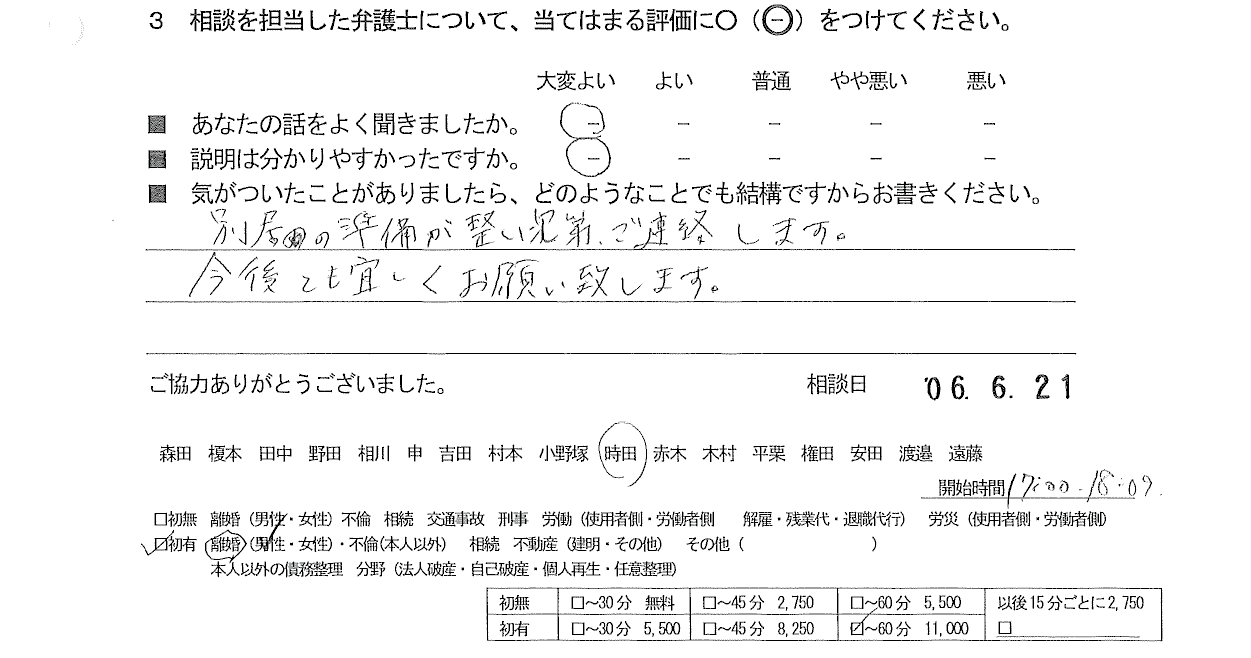 3 相談を担当した弁護士について、当てはまる評価に〇（㊀）をつけてください。
大変よい よい 普通 やや悪い 悪い
■ あなたの話をよく聞きましたか。 － － － － －
■ 説明は分かりやすかったですか。 － － － － －
■ 気がついたことがありましたら、どのようなことでも結構ですからお書きください。
別居の準備が整い次第、ご連絡します。
今後とも宜しくお願い致します。
ご協力ありがとうございました。 相談日 '06. 6. 21
森田 榎本 田中 野田 相川 申 吉田 村本 小野塚 時田 赤木 木村 平栗 権田 安田 渡邉 遠藤
開始時間 17:00-18:09
□初無 離婚（男性・女性）不倫 相続 交通事故 刑事 労働（使用者側・労働者側 解雇・残業代・退職代行） 労災（使用者側・労働者側）
□初有 離婚（男性・女性）・不倫（本人以外） 相続 不動産（建明・その他） その他（ ）
本人以外の債務整理 分野（法人破産・自己破産・個人再生・任意整理）
初無 □～30分 無料 □～45分 2,750 □～60分 5,500 以後15分ごとに2,750
初有 □～30分 5,500 □～45分 8,250 ☑～60分 11,000 □